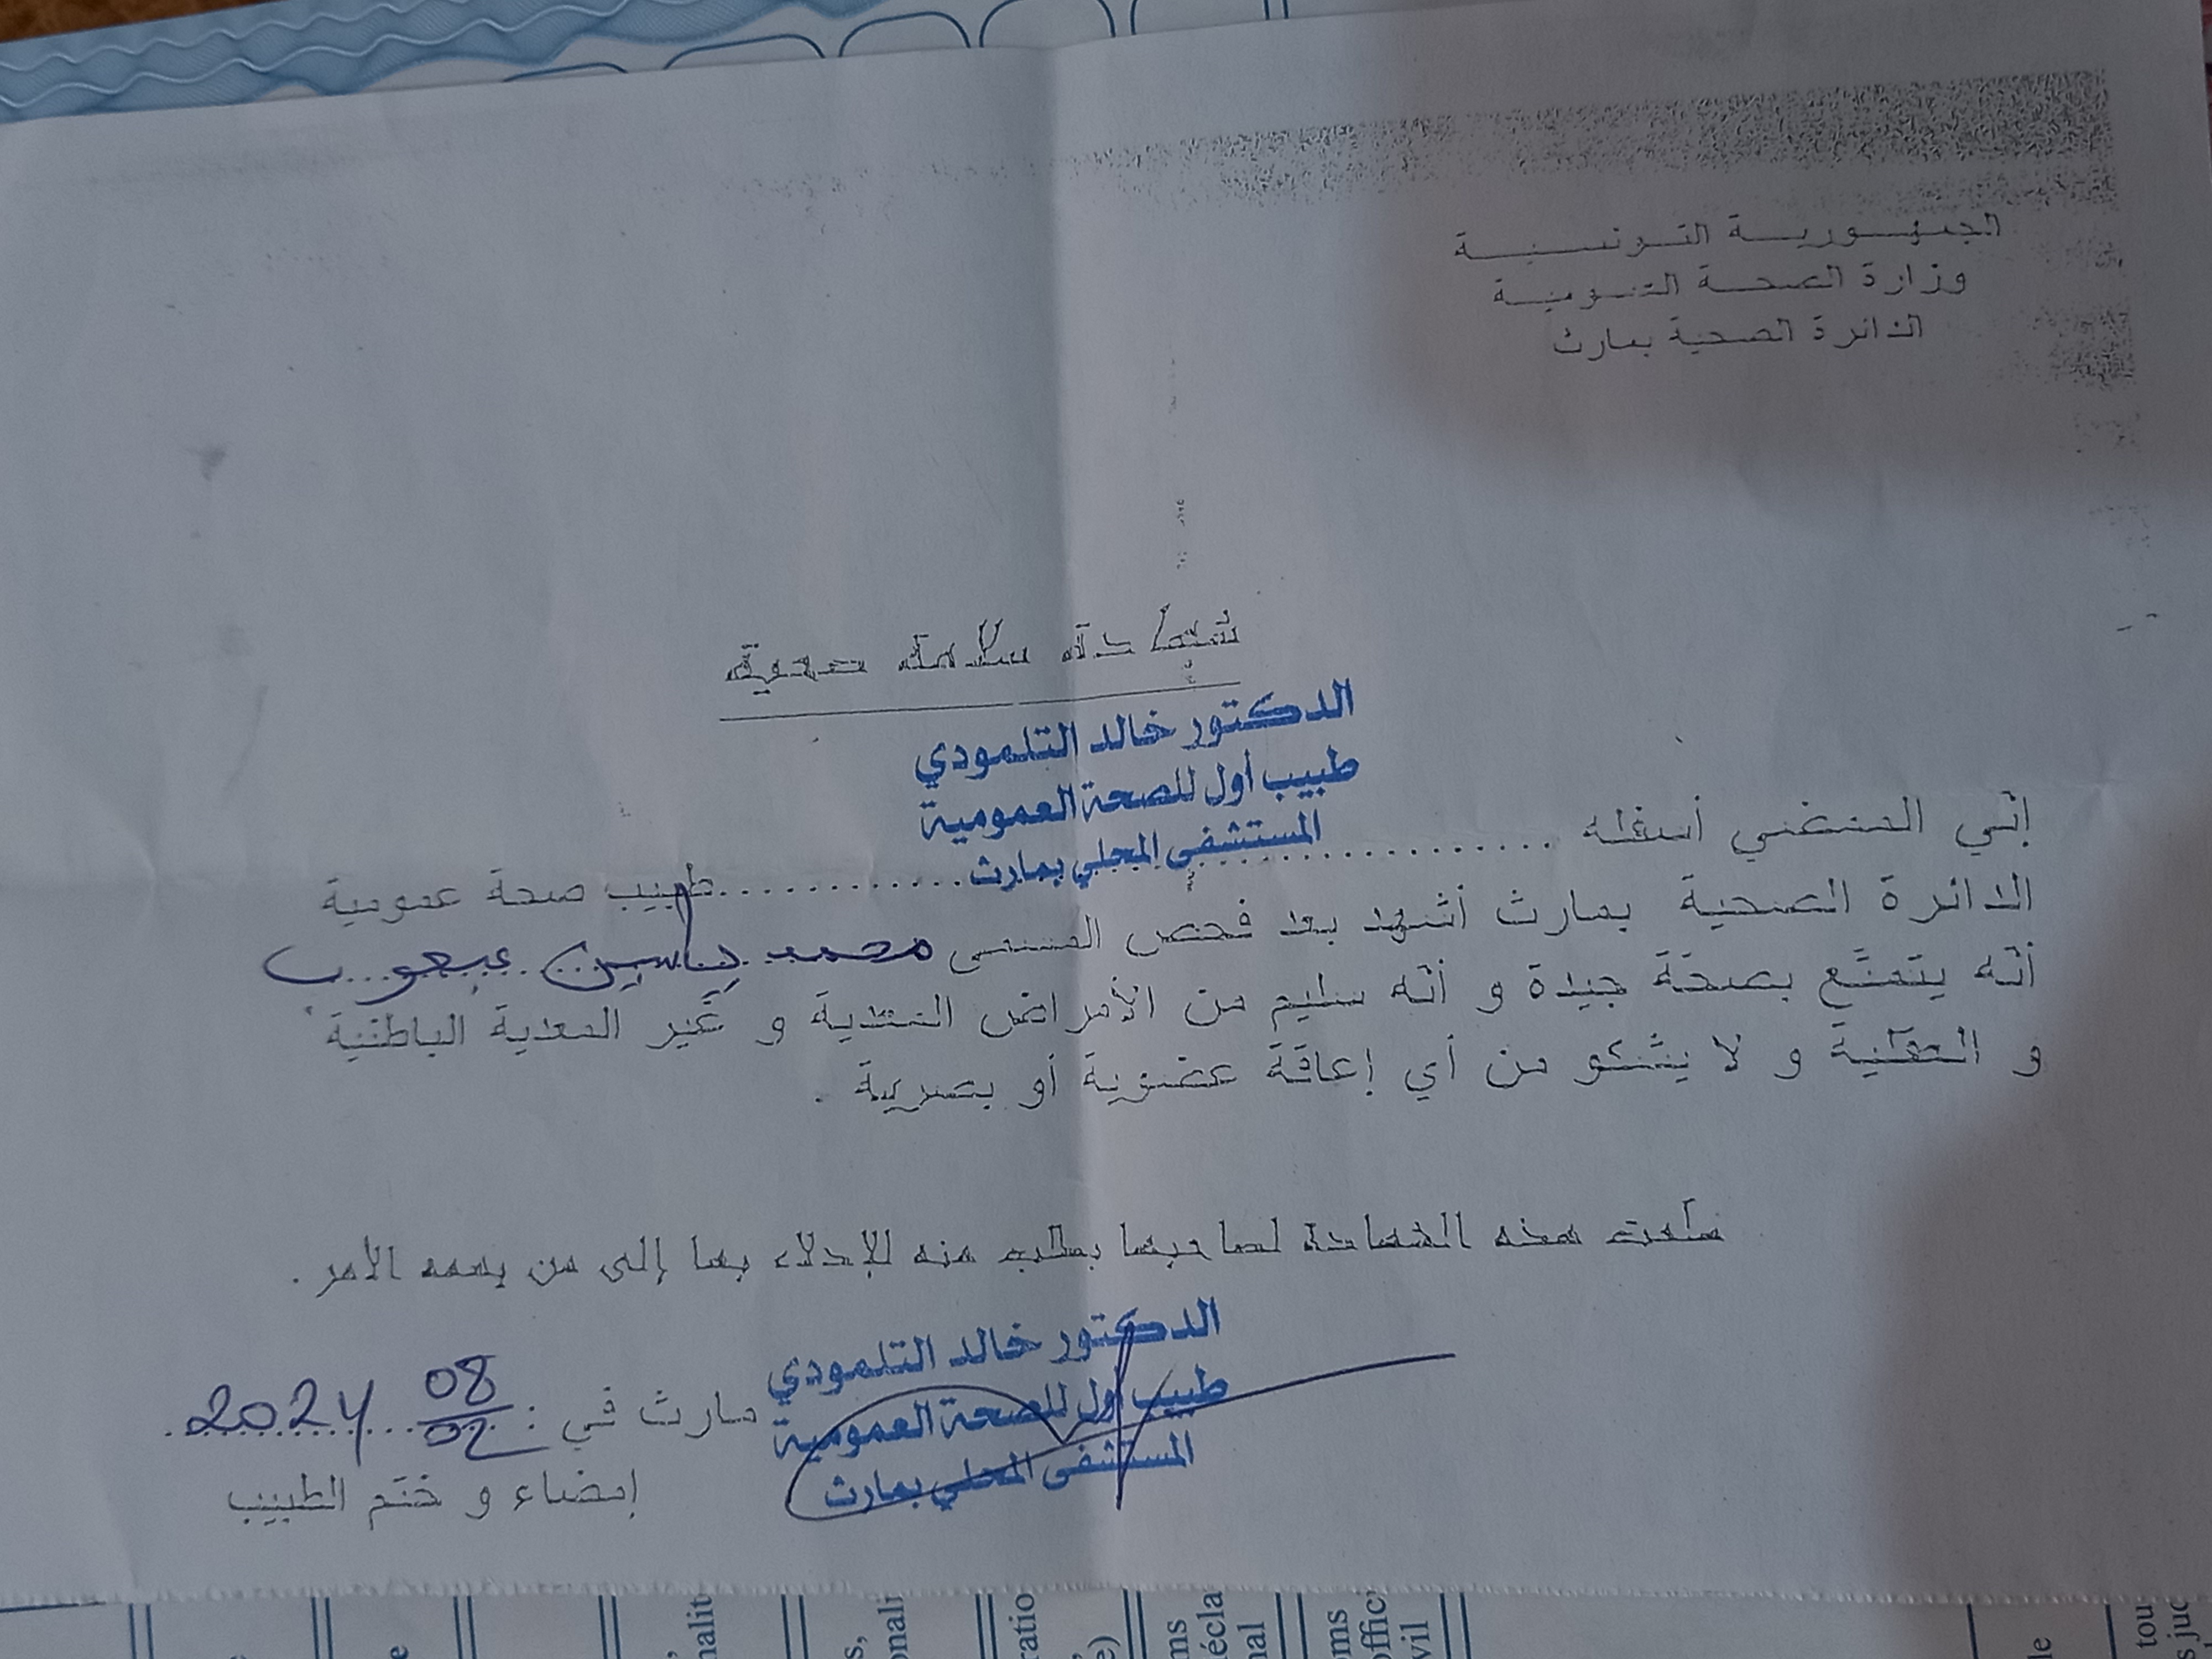 الجمهورية التونسية
وزارة الصحة العمومية
الدائرة الصحية بمارث
شهادة سلامة صحية
الدكتور خالد التلمودي
طبيب أول للصحة العمومية
المستشفى المحلي بمارث
إنّي الممضي أسفله ........................ طبيب صحة عمومية
الدائرة الصحية بمارث أشهد بعد فحص المسمى محمد ياسين عبعوب
أنّه يتمتّع بصحّة جيدة و أنّه سليم من الأمراض المعدية و غير المعدية الباطنية
و العقلية و لا يشكو من أي إعاقة عضوية أو بصرية .
سلمت هذه الشهادة لصاحبها بطلب منه للإدلاء بها إلى من يهمه الأمر .
الدكتور خالد التلمودي
طبيب أول للصحة العمومية
المستشفى المحلي بمارث
مارث في : 08/02 2024
إمضاء و ختم الطبيب
nalit
onali
ratio
e)
ms
écla
nal
oms
offic
vil
le
tou
s juc